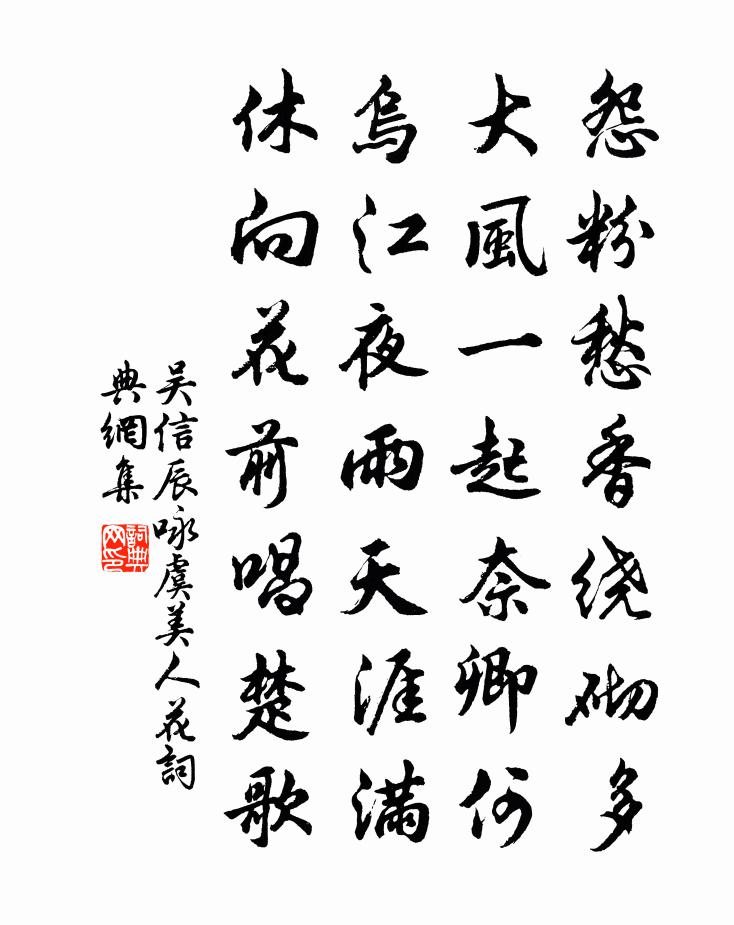 怨粉愁香绕砌多
大風一起奈卿何
烏江夜雨天涯滿
休向花前唱楚歌
吴信辰咏虞美人花詞
典網集
詞典
网印